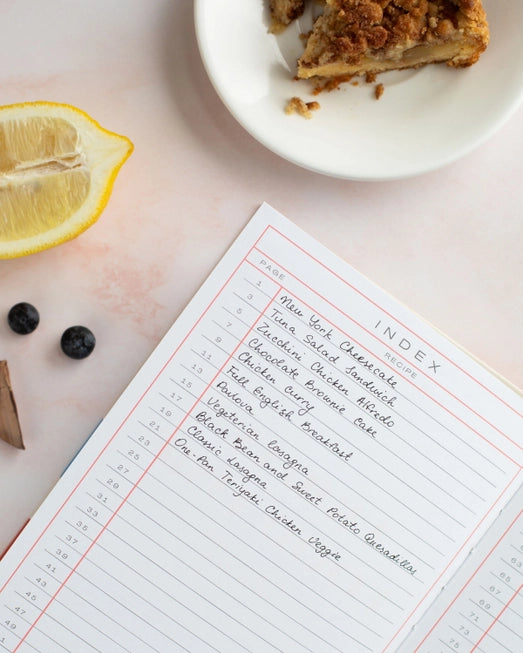 INDEX
PAGE RECIPE
1 New York Cheesecake
3 Tuna Salad Sandwich
5 Zucchini Chicken Alfredo
7 Chocolate Brownie Cake
9 Chicken Curry
11 Full English Breakfast
13 Pavlova
15 Vegeterian lasagna
17 Black Bean and Sweet Potato Quesadillas
19 Classic Lasagna
21 One-Pan Teriyaki Chicken Veggie
23
25
27
29
31
33
35
37
39
41
43
45
47
49
63
65
67
69
71
73
75